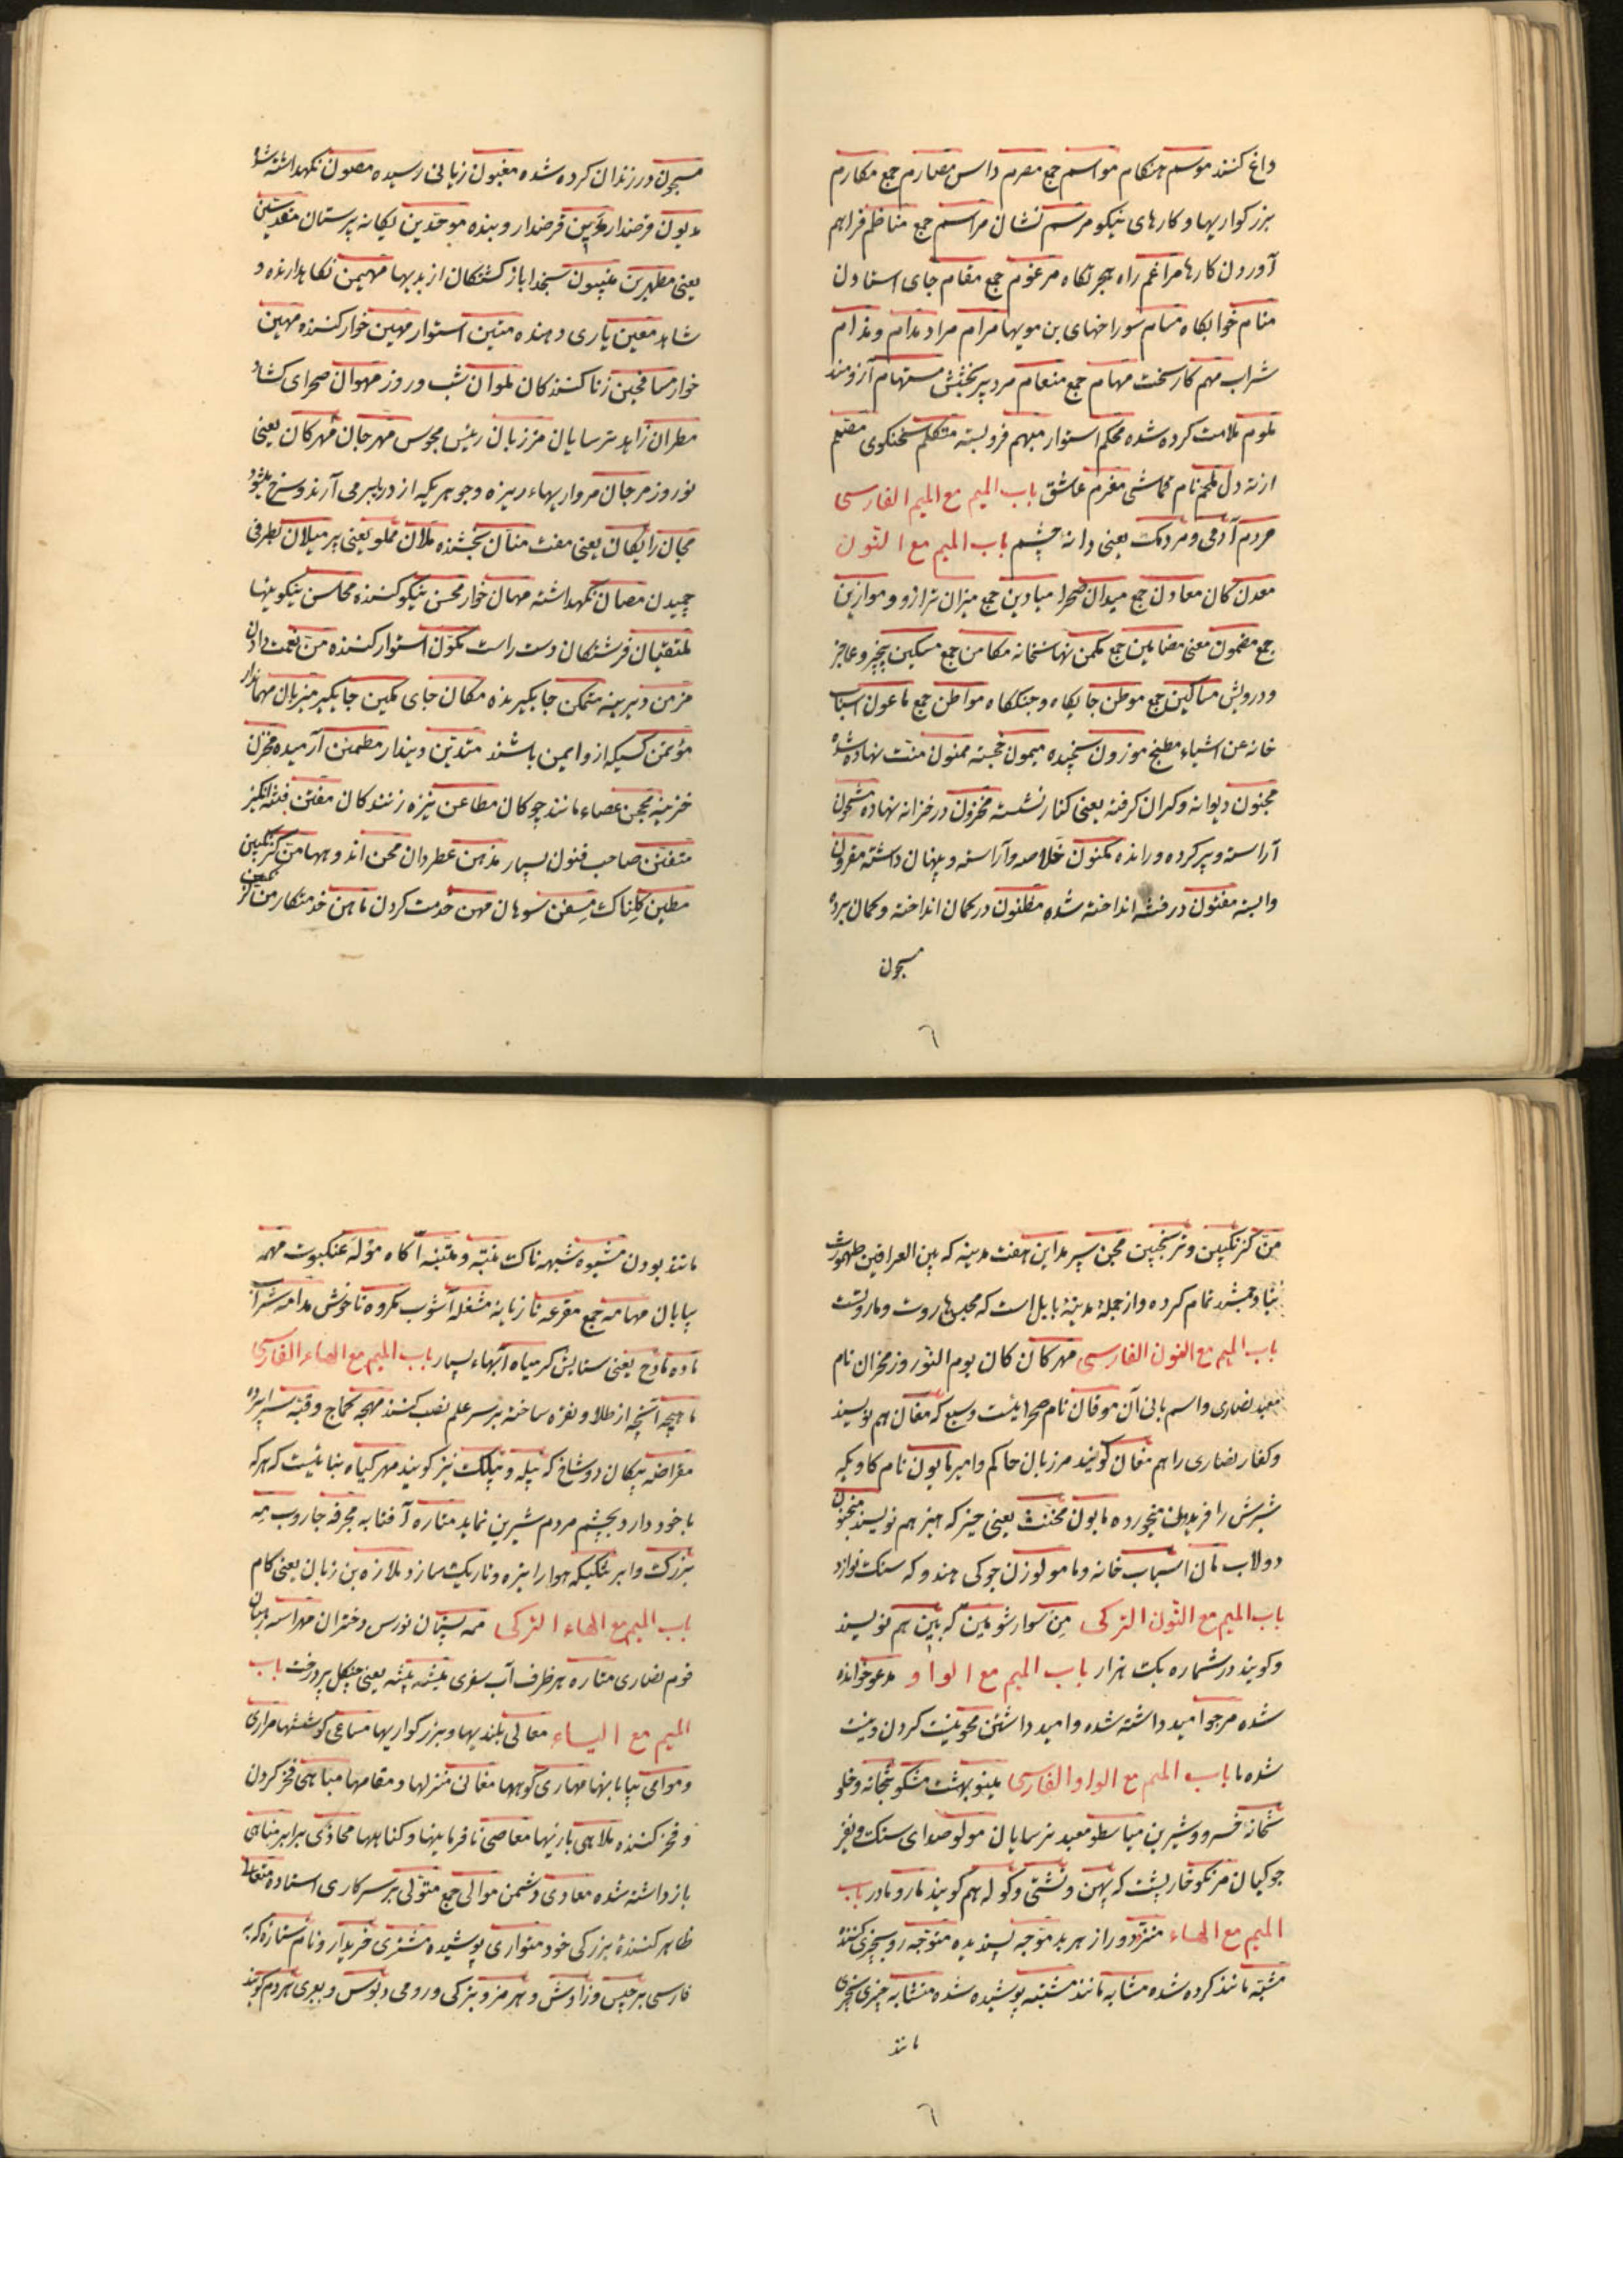 داغ کنند موسم هنکام مواسم جمع مصرم داس مصارم جمع مکارم
بزرکواریها و کارهای نیکو مرسم نشان مراسم جمع مناظم فراهم
آوردن کارها مراغم راه هجرتکاه مرغوم جمع مقام جای استادن
منام خوابکاه مسام سوراخهای بن مویها مرام مراد مدام و مدام
شراب مهم کار سخت مهام جمع منعام مرد پر بخشش مستهام آرزومند
ملوم ملامت کرده شده محکم استوار مبهم فروبسته متکلم سخنکوی
از ته دل ملحم نام قماشی مغرم عاشق باب المیم مع المیم الفارسی
مردم آدمی و مردمک یعنی دانه چشم باب المیم مع النون
معدن کان معادن جمع میدان صحرا میادین جمع میزان ترازو و موازین
جمع مضمون معنی مضامین جمع مکمن نهانخانه مکامن جمع مسکین بیچیز و عاجز
و درویش مساکین جمع موطن جایکاه و جنکگاه مواطن جمع ماعون اسباب
خانه عن اشیاء مطبخ موزون سنجیده میمون خجسته ممنون منت نهاده شده
مجنون دیوانه و کران کرفته یعنی کنار نشسته مخزون در خزانه نهاده مشحون
آراسته و پر کرده و رانده مکنون خلاصه و آراسته و پنهان داشته مقرون
وابسته مفتون در فتنه انداخته شده مظنون در کمان انداخته و کمان برده
مسجون
مسجون در زندان کرده شده مغبون زیانی رسیده مصون نکهداشته شده
مدیون قرضدار مدین قرضدار و بنده موحدین یکانه پرستان مقدسین
یعنی مطهرین منیبون بخدا باز کشتکان از بدیها مهیمن نکاهدارنده و
شاهد معین یاری دهنده متین استوار مهین خوار کننده مهین
خوار مسافحین زنا کنندکان ملوان شب و روز مهوان صحرای کشاد
مطران زاهد ترسایان مرزبان رئیس مجوس مهرجان مهرکان یعنی
نوروز مرجان مرواریهاء ریزه و جوهریکه از دریا برمی آرند و سرخ میشود
مجان رایکان یعنی مفت منان بخشنده ملان مملو یعنی پر میلان بطرفی
چمیدن مصان نکهداشته مهان خوار محسن نیکو کننده محاسن نیکوییها
متقیان فرشتکان دست راست مکون استوار کننده من نعمت دادن
مزمن دیرینه متمکن جایکیرنده مکان جای مکین جایکیر میزبان مهماندار
مؤتمن کسیکه ازو ایمن باشند متدین دیندار مطمئن آرمیده مخزن
خزینه محجن عصاء مانند چوکان مطاعن نیزه زنندکان مفتن فتنه انکیز
متفنن صاحب فنون بسیار مدهن عطردان محن اندوهها من کزنکبین
مطین کلناک مسفن سوهان مهن خدمت کردن ماهن خدمتکار من کز
من کزنکبین و ترنجبین مجن سپر مداین هفت مدینه که بین العراقین طهمورث
بنیاد و جمشید تمام کرده و از جملهٔ مدینهٔ بابل است که محبس هاروت و ماروتست
باب المیم مع النون الفارسی مهرکان کان یوم النوروز مخزان نام
معبد نصاری و اسم بانی آن موقان نام صحرائیست وسیع که مغان هم نویسند
و کفار نصاری را هم مغان کویند مرزبان حاکم و امیر مابون نام کاویکه
شیرش را فریدون میخورده مابون مخنث یعنی حیز که هیز هم نویسند منجنون
دولاب مان اسباب خانه و ما مولوزن جوکی هندو که سنک نوازد
باب المیم مع النون الترکی من سوار شو مین که بین هم نویسند
و کویند در شماره یک هزار باب المیم مع الواو مدعو خوانده
شده مرجو امید داشته شده و امید داشتن محو نیست کردن و نیست
شده ما باب المیم مع الواو الفارسی مینو بهشت مشکو بتخانه و خلو
تخانهٔ خسرو و شیرین میاسطو معبد ترسایان مولو صدای سنک و نفیر
جوکیان مرنکو خارپشت که پهن و تشتی و کوله هم کویند مارو مادر باب
المیم مع الهاء منزه دور از هر بد موجه پسندیده متوجه رو بچیزی کننده
مشبه مانند کرده شده مشابه مانند مشتبه پوشیده شده متشابه چیزی بچیزی
مانند
مانند بودن مشبوه شبهه ناک منبه و متنبه آکاه موله عنکبوت مهمه
بیابان مهامه جمع مقرعه تازیانه مشغله آشوب مکروه ناخوش مدامه شراب
ماده مادح یعنی ستایش کر میاه آبهاء بسیار باب المیم مع الهاء الفارسی
ماهچه آنچه از طلا و نقره ساخته بر سر علم نصب کنند مهچه کماج و قبه سراپرده
مقراضه پیکان دو شاخ که بیله و بیلک نیز کویند مهرکیاه نباتیست که هرکه
با خود دارد بچشم مردم شیرین نماید مناره آفتابه مجرفه جاروب مه
بزرک و ابر تنکیکه هوا را تیره و تاریک سازد ملازه بن زبان یعنی کام
باب المیم مع الهاء الترکی ممه پستان نورس دختران مهراسه رهبان
قوم نصاری متاره هر ظرف آب سفری میشه بیشه یعنی جنکل پر درخت باب
المیم مع الیاء معالی بلندیها و بزرکواریها مساعی کوششها مراری
و موامی بیابانها مهاری کوهها مغانی منزلها و مقامها مباهی فخر کردن
و فخر کننده ملاهی بازیها معاصی نافرمانیها و کناهها محاذی برابر مناهی
باز داشته شده معادی دشمن موالی جمع متولی بر سر کاری استاده متعالی
ظاهر کنندهٔ بزرکی خود متواری پوشیده مشتری خریدار و نام ستاره که به
فارسی برجیس و زاوش و هرمز و بزرکی و رومی دبوس و بعبری هردم کویند